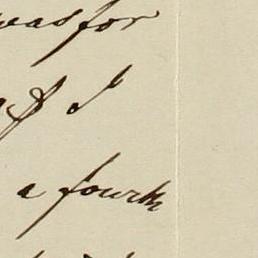 was for
I
a fourth